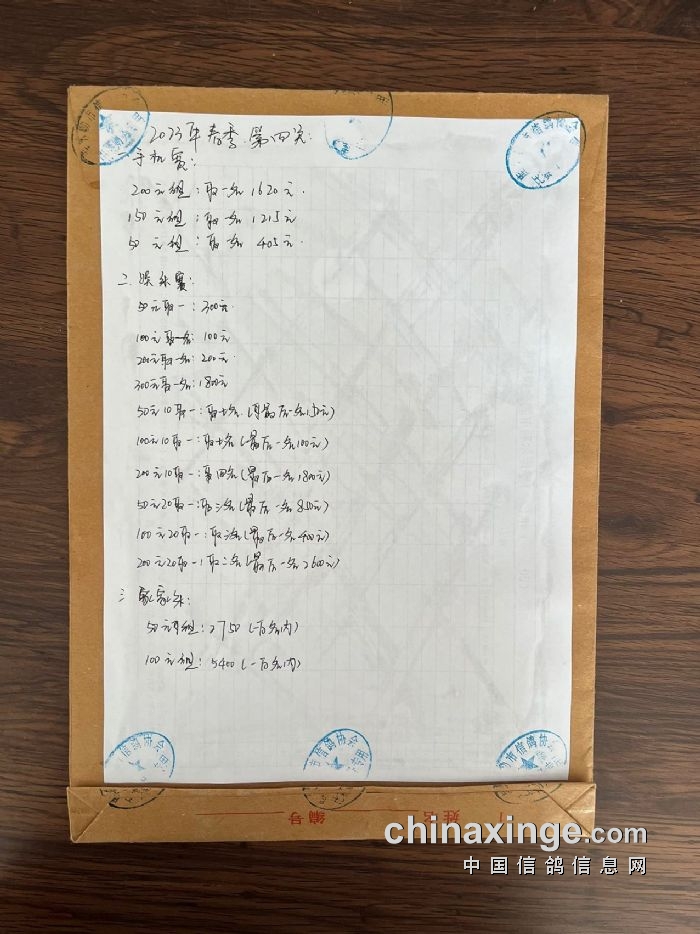 2023年春季第四关:
手机赛:
200元组:取一名1620元.
150元组:取一名1215元
50元组:取一名405元.
二 娱乐赛:
50元取一:300元.
100元取一名:100元
200元取一名:200元.
300元取一名:1800元
50元10取一:取十名(最后一名元)
100元10取一:取十名(最后一名100元)
200元10取一:取四名(最后一名1800元)
50元20取一:取三名(最后一名850元)
100元20取一:取名(最后一名400元)
200元20取一:取二名(最后一名2600元)
三 家:
50元组:2750(一百名内)
100元组:5400(一百名内)
市信鸽协会
编号
姓名
chinaxinge.com
中国信鸽信息网